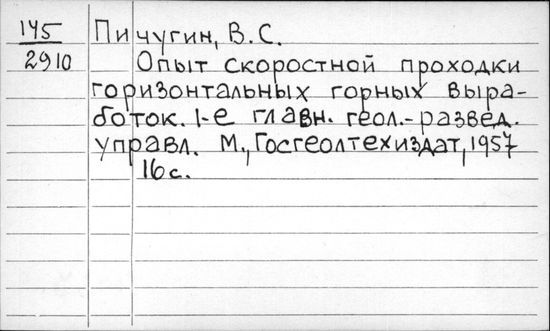 145 Пичугин, В.С.
2910 Опыт скоростной проходки
горизонтальных горных выра-
боток. 1-е главн. геол.-развед.
управл. М., Госгеолтехиздат, 1957
16 с.